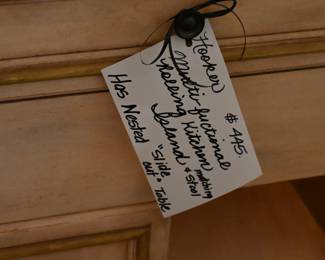 Hooker $ 445.
Multi-fuctional
Rolling Kitchen matching
Island & Stool
Has Nested "Slide out" Table